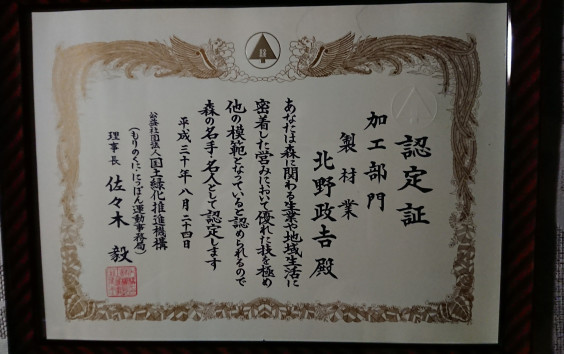 認定証
加工部門
製材業
北野政吉殿
あなたは森に関わる生業や地域生活に
密着した営みにおいて優れた技を極め
他の模範となっていると認められるので
森の名手・名人として認定します
平成三十年八月二十四日
公益社団法人国土緑化推進機構
(もりのくに・にっぽん運動事務局)
理事長 佐々木 毅